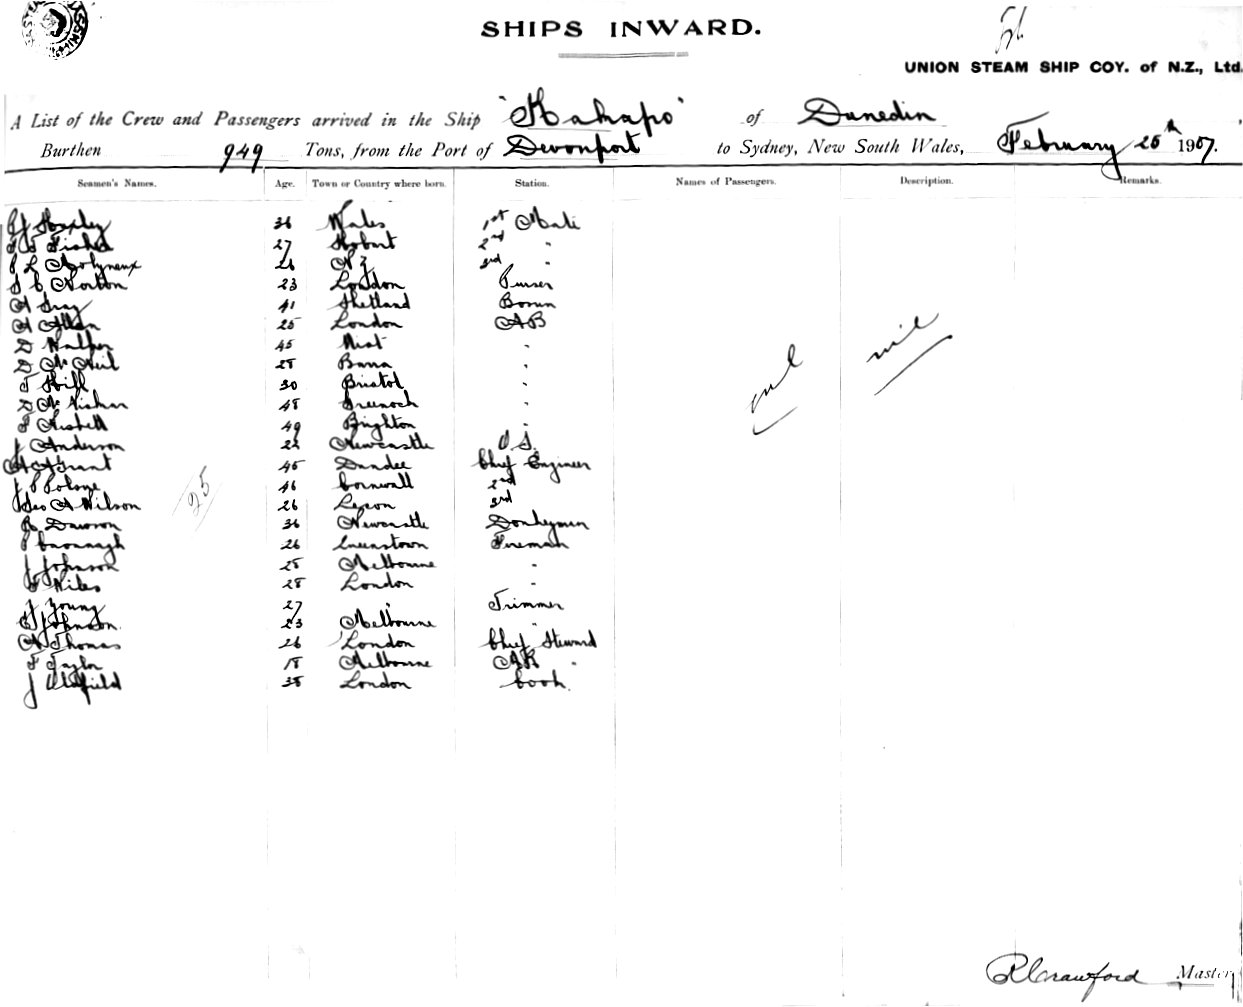 SHIPS INWARD.
UNION STEAM SHIP COY. of N.Z., Ltd.
A List of the Crew and Passengers arrived in the Ship "Kakapo" of Dunedin
Burthen 949 Tons, from the Port of Devonport to Sydney, New South Wales, February 25th 1907.
Seamen's Names. Age. Town or Country where born. Station. Names of Passengers. Description. Remarks.
36 Wales 1st Mate
27 Hobart 2nd "
P L Molyneux 26 N Z 3rd "
S C Norton 23 London Purser
A Gray 41 Shetland Bosun
A Allan 25 London AB
D Walker 45 "
D McNeil 28 Barra "
T Hill 30 Bristol "
48 Greenock "
Nesbett 49 Brighton "
J Anderson 22 Newcastle O.S.
A A Grant 45 Dundee Chief Engineer
J P 46 Cornwall 2nd
Geo A Wilson 26 3rd
25
R Dawson 36 Newcastle Donkeyman
P Cavanagh 26 Queenstown Fireman
J Johnson 28 Melbourne "
Wiles 28 London "
J Young 27 " Trimmer
C Johnson 23 Melbourne "
A Thomas 26 London Chief Steward
F Taylor 18 Melbourne "
J Oldfield 38 London Cook
nil nil
R Crawford Master